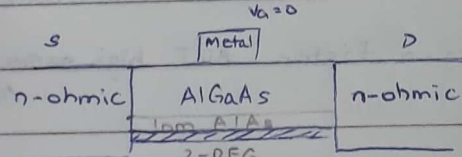 V_G = 0
S Metal D
n-ohmic AlGaAs n-ohmic
1nm AlAs
2-DEG